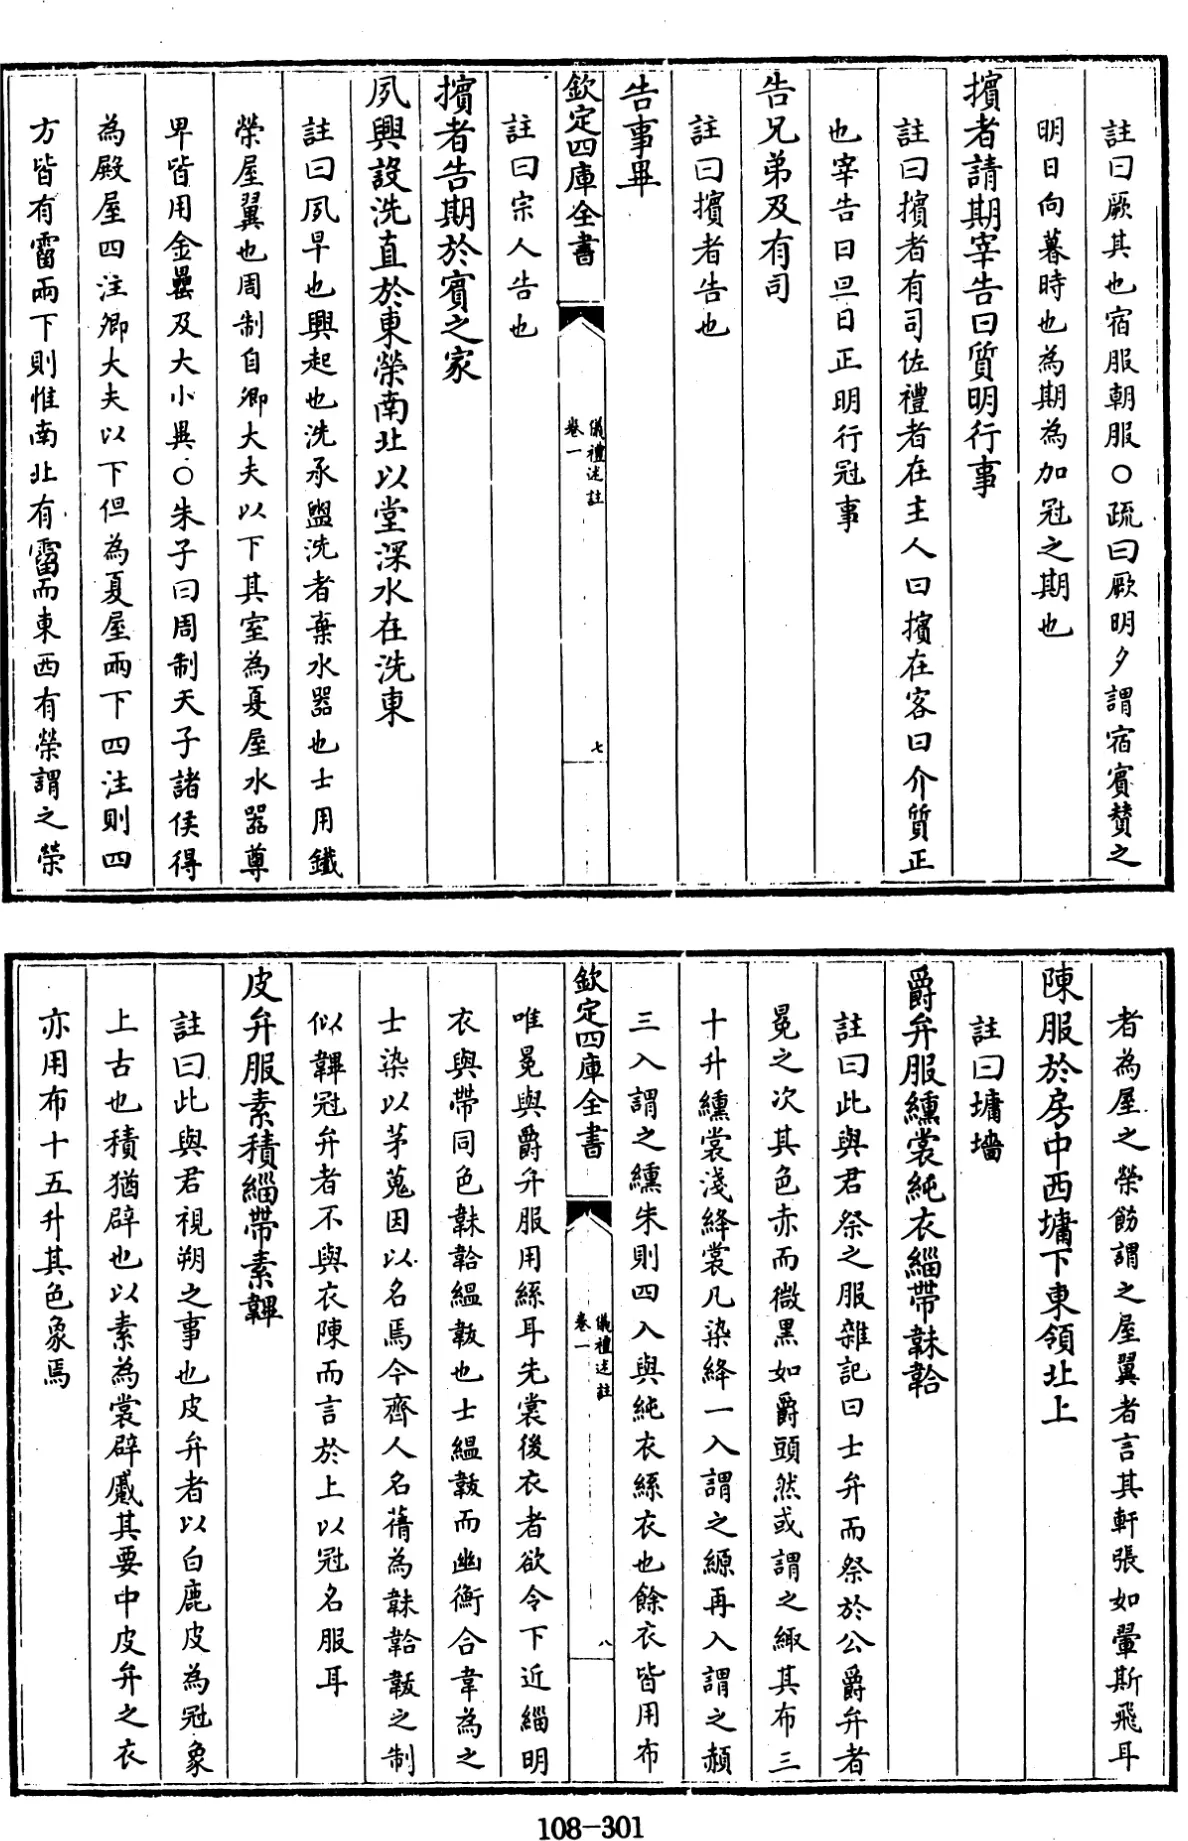 註曰厥其也宿服朝服○疏曰厥明夕謂宿賓賛之
明日向暮時也為期為加冠之期也
擯者請期宰告曰質明行事
註曰擯者有司佐禮者在主人曰擯在客曰介質正
也宰告曰旦日正明行冠事
告兄弟及有司
註曰擯者告也
告事畢
欽定四庫全書
儀禮述註
卷一
七
註曰宗人告也
擯者告期於賓之家
夙興設洗直於東榮南北以堂深水在洗東
註曰夙早也興起也洗承盥洗者棄水器也士用鐵
榮屋翼也周制自卿大夫以下其室為夏屋水器尊
卑皆用金罍及大小異○朱子曰周制天子諸侯得
為殿屋四注卿大夫以下但為夏屋兩下四注則四
方皆有霤兩下則惟南北有霤而東西有榮謂之榮
者為屋之榮飭謂之屋翼者言其軒張如翬斯飛耳
陳服於房中西墉下東領北上
註曰墉墻
爵弁服纁裳純衣緇帶韎韐
註曰此與君祭之服雜記曰士弁而祭於公爵弁者
冕之次其色赤而微黒如爵頭然或謂之緅其布三
十升纁裳淺絳裳凡染絳一入謂之縓再入謂之赬
三入謂之纁朱則四入與純衣絲衣也餘衣皆用布
欽定四庫全書
儀禮述註
卷一
八
唯冕與爵弁服用絲耳先裳後衣者欲令下近緇明
衣與帶同色韎韐緼韍也士緼韍而幽衡合韋為之
士染以茅蒐因以名焉今齊人名蒨為韎韐韍之制
似韠冠弁者不與衣陳而言於上以冠名服耳
皮弁服素積緇帶素韠
註曰此與君視朔之事也皮弁者以白鹿皮為冠象
上古也積猶辟也以素為裳辟蹙其要中皮弁之衣
亦用布十五升其色象焉
108-301